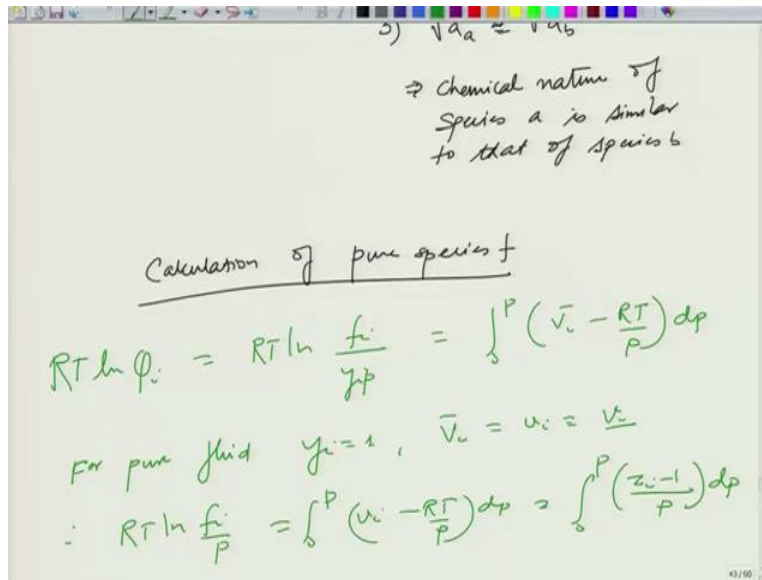 3) √a_a ≈ √a_b
⇒ Chemical nature of
Species a is similar
to that of species b
Calculation of pure species f
RT ln φ_i = RT ln f_i/(y_i P) = ∫_0^P (V̄_i - RT/P) dp
For pure fluid y_i = 1, V̄_i = v_i = v_i
∴ RT ln f_i/P = ∫_0^P (v_i - RT/P) dp = ∫_0^P ((z_i - 1)/P) dp
43/50